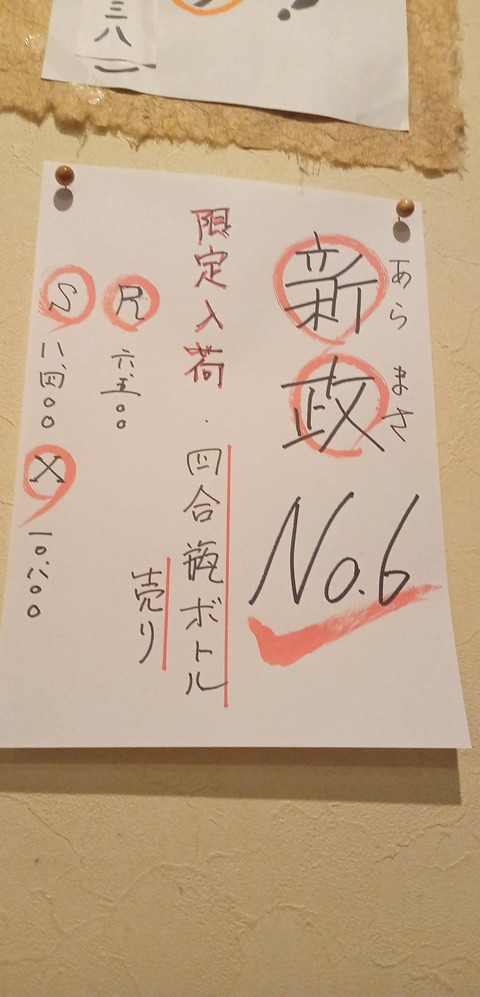 三八
新政
あらまさ
No.6
限定入荷・四合瓶ボトル
売り
R 六、五〇〇
S 八、四〇〇
X 一〇、八〇〇